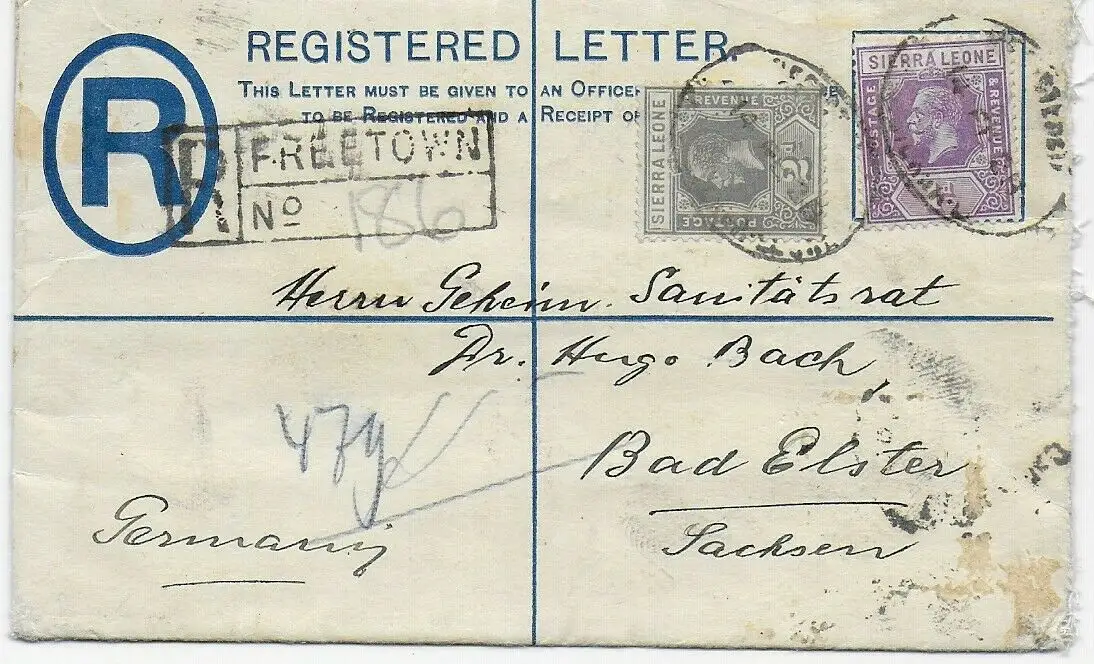 REGISTERED LETTER.
THIS LETTER MUST BE GIVEN TO AN OFFICE
TO BE REGISTERED AND A RECEIPT
R
R FREETOWN
No 186
SIERRA LEONE
REVENUE
POSTAGE
2d
SIERRA LEONE
POSTAGE
& REVENUE
Herrn Geheim. Sanitätsrat
Dr. Hugo Bach,
479
Bad Elster
Germany
Sachsen